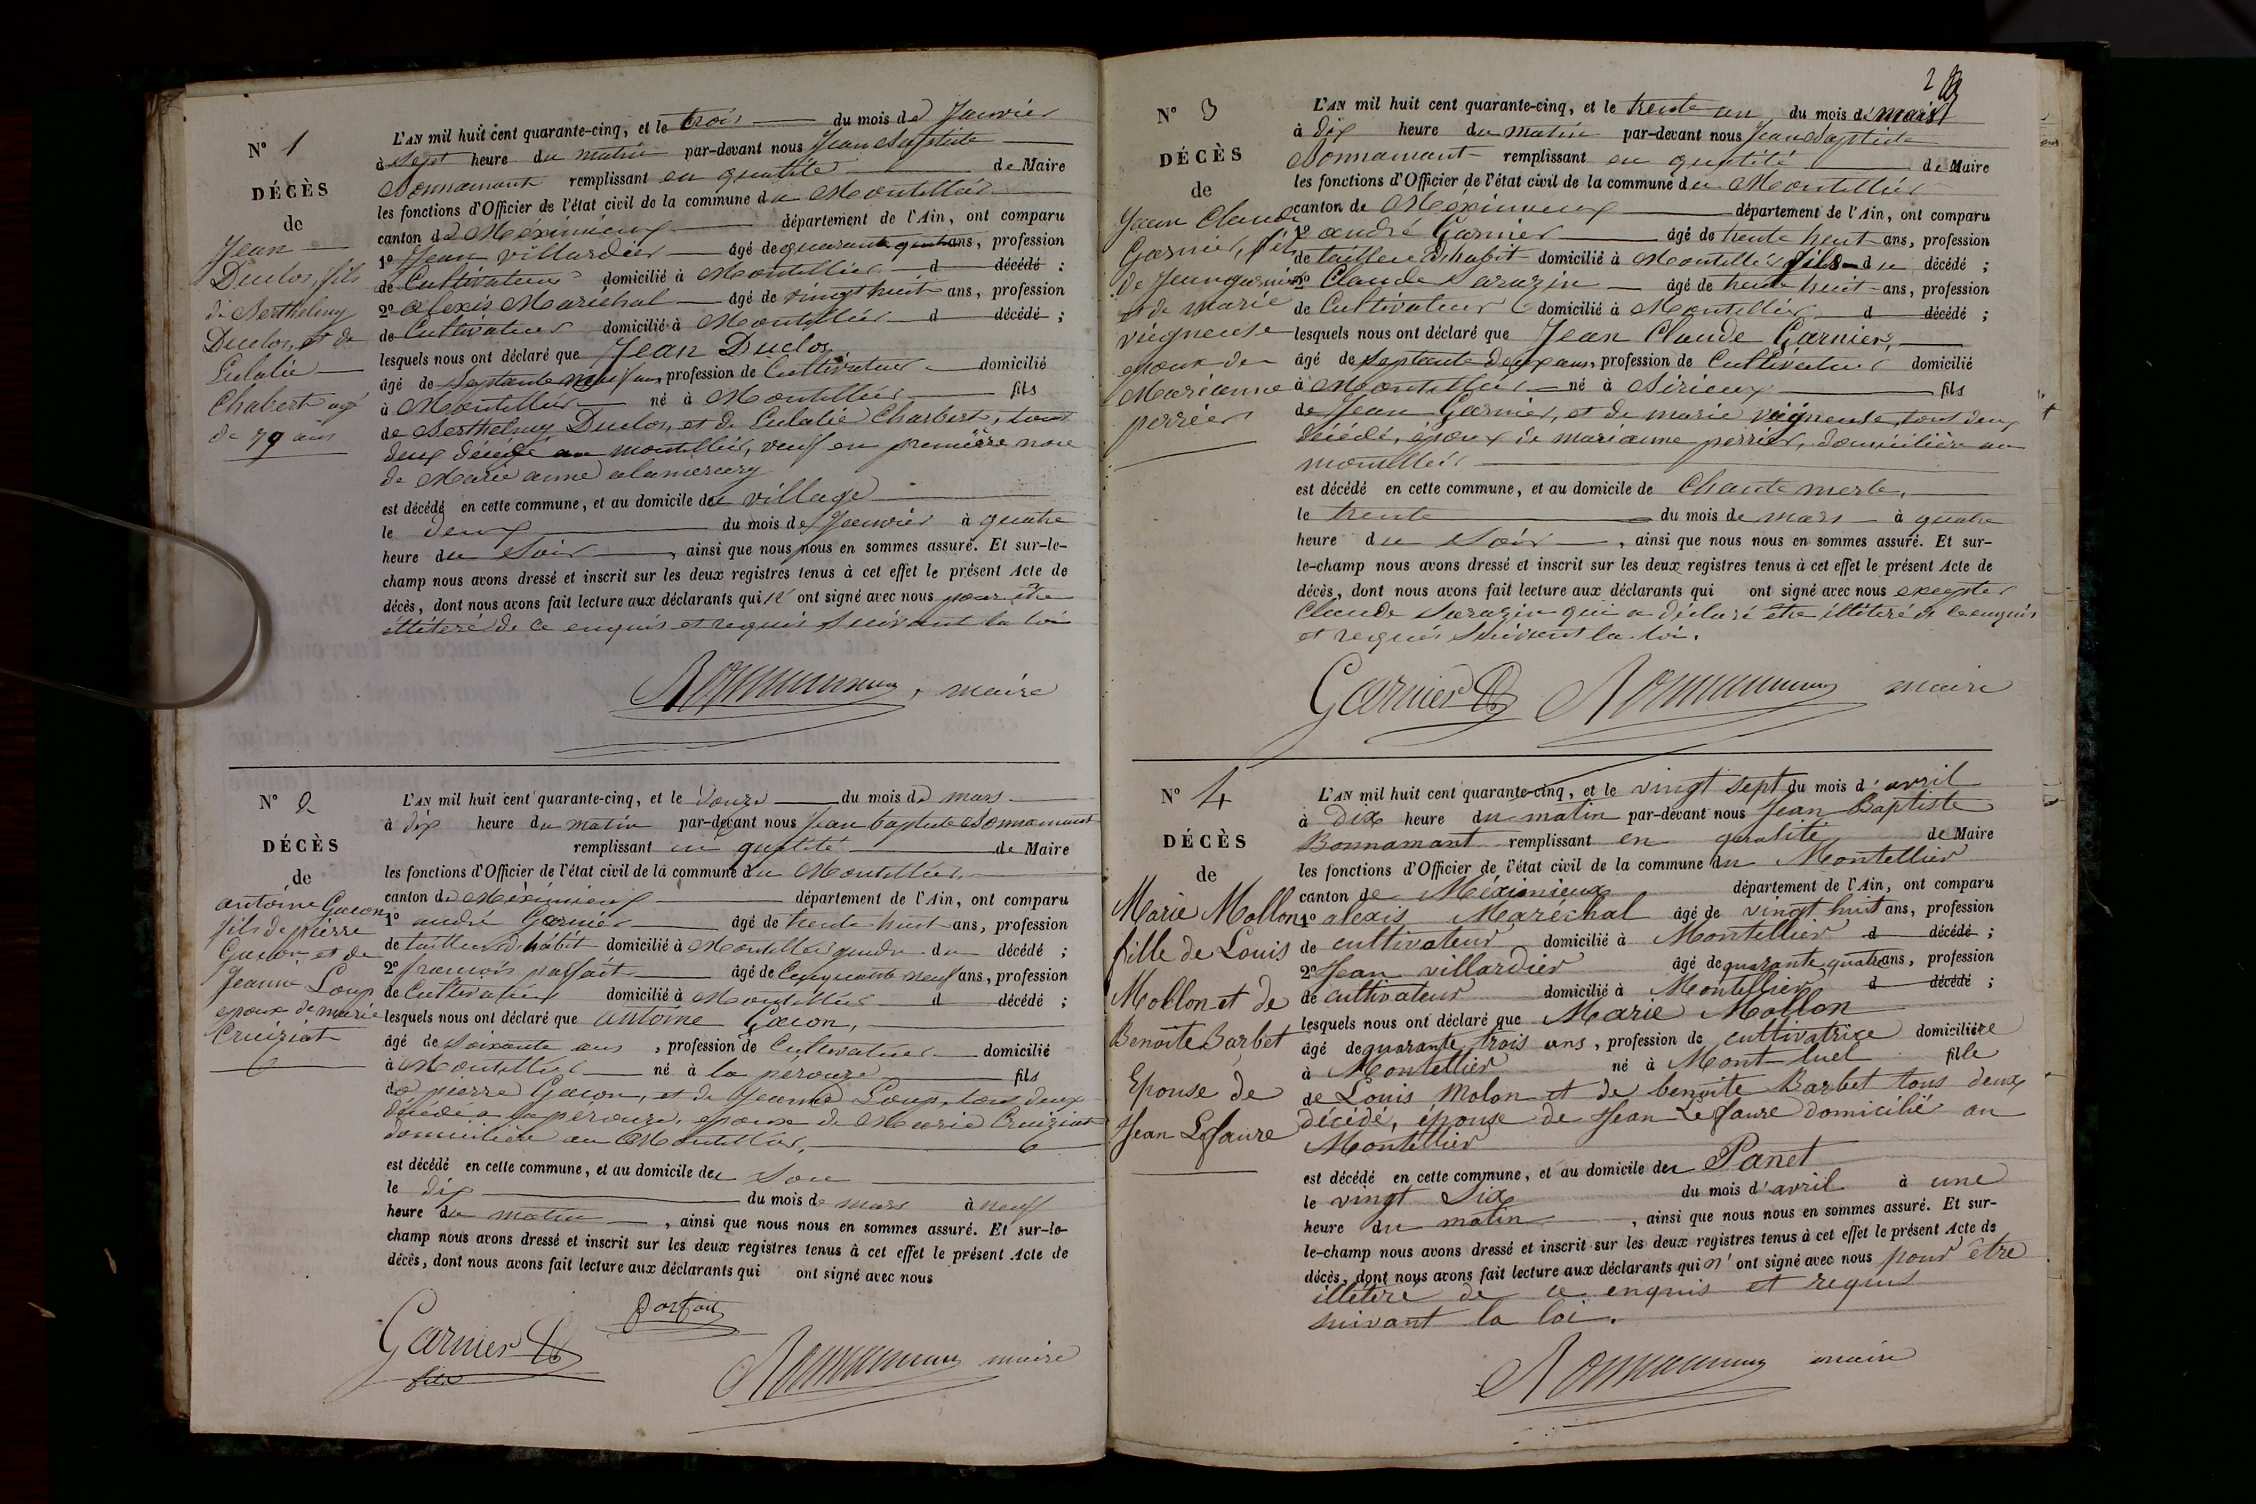 N° 1
DÉCÈS
de
Jean
Duclos, fils
de Berthelmy
Duclos, et de
Eulalie
Chabert agé
de 79 ans
L'AN mil huit cent quarante-cinq, et le trois du mois de Janvier
à sept heure du matin par-devant nous Jean Baptiste
Bonnamant remplissant en qualité de Maire
les fonctions d'Officier de l'état civil de la commune du Montellier
canton de Méximieux département de l'Ain, ont comparu
1° Jean villardier âgé de quarante quatre ans, profession
de Cultivateur domicilié à Montellier d décédé ;
2° alexis Maréchal âgé de vingt huit ans, profession
de Cultivateur domicilié à Montellier d décédé ;
lesquels nous ont déclaré que Jean Duclos
âgé de septante neuf ans, profession de Cultivateur domicilié
à Montellier né à Montellier fils
de Berthelmy Duclos, et de Eulalie Charbert, tout
deux décédé au montellier, veuf en première noce
de Marie anne alamercery
est décédé en cette commune, et au domicile du village
le deux du mois de Janvier à quatre
heure du Soir, ainsi que nous nous en sommes assuré. Et sur-le-
champ nous avons dressé et inscrit sur les deux registres tenus à cet effet le présent Acte de
décès, dont nous avons fait lecture aux déclarants qui n' ont signé avec nous pour être
illétéré de ce enquis et requis Suivant la loi
Bonnamant, maire
N° 2
DÉCÈS
de
antoine Gacon
fils de pierre
Gacon et de
Jeanne Loup
epoux de marie
Cruiziat
L'AN mil huit cent quarante-cinq, et le douze du mois de mars
à dix heure du matin par-devant nous Jean baptiste Bonnamant
remplissant en qualité de Maire
les fonctions d'Officier de l'état civil de la commune du Montellier
canton de Méximieux département de l'Ain, ont comparu
1° andré Garnier âgé de trente huit ans, profession
de tailleur d'habit domicilié à Montellier gendre du décédé ;
2° francois parfait âgé de Cinquante neuf ans, profession
de Cultivateur domicilié à Montellier d décédé ;
lesquels nous ont déclaré que antoine Gacon,
âgé de Soixante ans, profession de Cultivateur domicilié
à Montellier né à la perouze fils
de pierre Gacon, et de Jeanne Loup, tous deux
décédé a la pérouze, epoux de Marie Cruiziat
domiciliée au Montellier,
est décédé en cette commune, et au domicile de
le dix du mois de mars à neuf
heure du matin, ainsi que nous nous en sommes assuré. Et sur-le-
champ nous avons dressé et inscrit sur les deux registres tenus à cet effet le présent Acte de
décès, dont nous avons fait lecture aux déclarants qui ont signé avec nous
parfait
Garnier
Bonnamant maire
2
N° 3
DÉCÈS
de
Jean Claude
Garnier, fils
de Jean garnier
et de marie
vigneuse
epoux de
Marianne
perrier
L'AN mil huit cent quarante-cinq, et le trente un du mois de mars
à dix heure du matin par-devant nous Jean Baptiste
Bonnamant remplissant en qualité de Maire
les fonctions d'Officier de l'état civil de la commune du Montellier
canton de Méximieux département de l'Ain, ont comparu
1° andré Garnier âgé de trente huit ans, profession
de tailleur d'habit domicilié à Montellier fils du décédé ;
2° Claude Sarazin âgé de trente huit ans, profession
de Cultivateur domicilié à Montellier d décédé ;
lesquels nous ont déclaré que Jean Claude Garnier,
âgé de septante deux ans, profession de Cultivateur domicilié
à Montellier né à Birieux fils
de Jean Garnier, et de marie vigneuse, tout deux
décédé, époux de marianne perrier, domicilière au
montellier
est décédé en cette commune, et au domicile de Chante merle,
le trente du mois de mars à quatre
heure du Soir, ainsi que nous nous en sommes assuré. Et sur-
le-champ nous avons dressé et inscrit sur les deux registres tenus à cet effet le présent Acte de
décès, dont nous avons fait lecture aux déclarants qui ont signé avec nous excepter
Claude Sarazin qui a déclaré être illétéré de ce enquis
et requis Suivant la loi.
Garnier Bonnamant maire
N° 4
DÉCÈS
de
Marie Mollon
fille de Louis
Mollon et de
Benoite Barbet
Epouse de
Jean Lefaure
L'AN mil huit cent quarante-cinq, et le vingt sept du mois d'avril
à Dix heure du matin par-devant nous Jean Baptiste
Bonnamant remplissant en qualité de Maire
les fonctions d'Officier de l'état civil de la commune du Montellier
canton de Méximieux département de l'Ain, ont comparu
1° alexis Maréchal âgé de vingt huit ans, profession
de cultivateur domicilié à Montellier d décédé ;
2° Jean villardier âgé de quarante quatre ans, profession
de cultivateur domicilié à Montellier d décédé ;
lesquels nous ont déclaré que Marie Mollon
âgé de quarante trois ans, profession de cultivatrice domicilière
à Montellier né à Mont-luel fille
de Louis Molon et de benoite Barbet tous deux
décédé, épouse de Jean Lefaure domicilié au
Montellier
est décédé en cette commune, et au domicile du Panet
le vingt Six du mois d'avril à une
heure du matin, ainsi que nous nous en sommes assuré. Et sur-
le-champ nous avons dressé et inscrit sur les deux registres tenus à cet effet le présent Acte de
décès, dont nous avons fait lecture aux déclarants qui n' ont signé avec nous pour être
illétéré de ce enquis et requis
suivant la loi.
Bonnamant maire